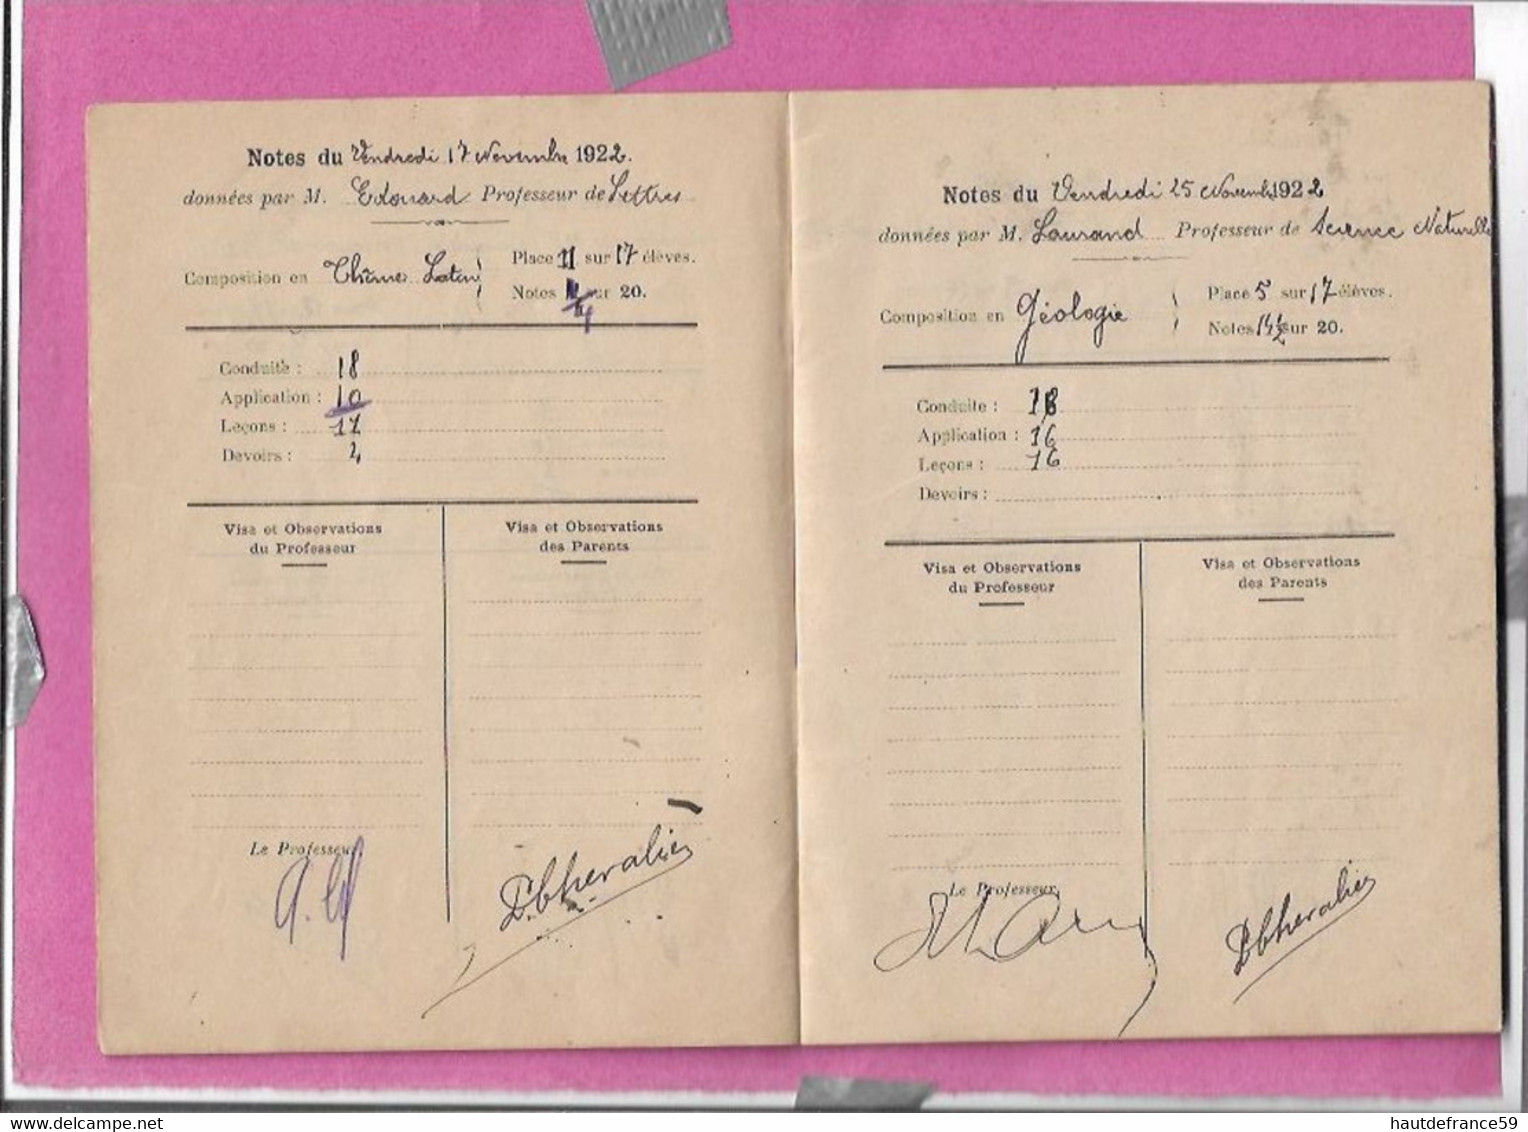 Notes du Vendredi 17 Novembre 1922.
données par M. Edouard Professeur de Lettres
Composition en Thème Latin
Place 11 sur 17 élèves.
Notes sur 20.
Conduite : 18
Application : 10
Leçons : 17
Devoirs :
Visa et Observations
du Professeur
Visa et Observations
des Parents
Le Professeur
D. Chevalier
Notes du Vendredi 25 Novembre 1922
données par M. Laurand Professeur de Science Naturelle
Composition en Géologie
Place 5 sur 17 élèves.
Notes 14 1/2 sur 20.
Conduite : 18
Application : 16
Leçons : 16
Devoirs :
Visa et Observations
du Professeur
Visa et Observations
des Parents
Le Professeur
D Chevalier
hautdefrance59